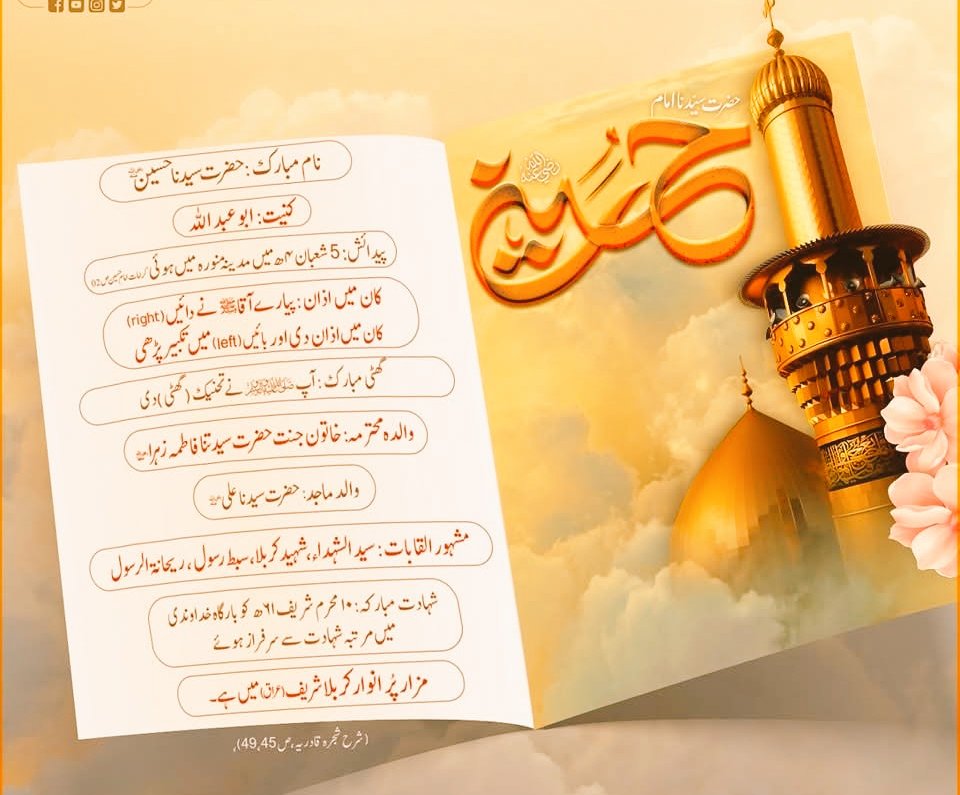 حضرت سیدنا امام
حسین
رضی اللہ عنہ
نام مبارک: حضرت سیدنا حسین
کنیت: ابو عبد اللہ
پیدائش: 5 شعبان ۴ھ میں مدینہ منورہ میں ہوئی
کان میں اذان: پیارے آقا ﷺ نے دائیں (right)
کان میں اذان دی اور بائیں (left) میں تکبیر پڑھی
گھٹی مبارک: آپ ﷺ نے تحنیک (گھٹی) دی
والدہ محترمہ: خاتون جنت حضرت سیدتنا فاطمہ زہرا
والد ماجد: حضرت سیدنا علی
مشہور القابات: سید الشہداء، شہید کربلا، سبط رسول، ریحانۃ الرسول
شہادت مبارکہ: ۱۰ محرم شریف ۶۱ھ کو بارگاہ خداوندی
میں مرتبہ شہادت سے سرفراز ہوئے
مزار پُر انوار کربلا شریف (عراق) میں ہے۔
(شرح شجرہ قادریہ، ص 45، 49)